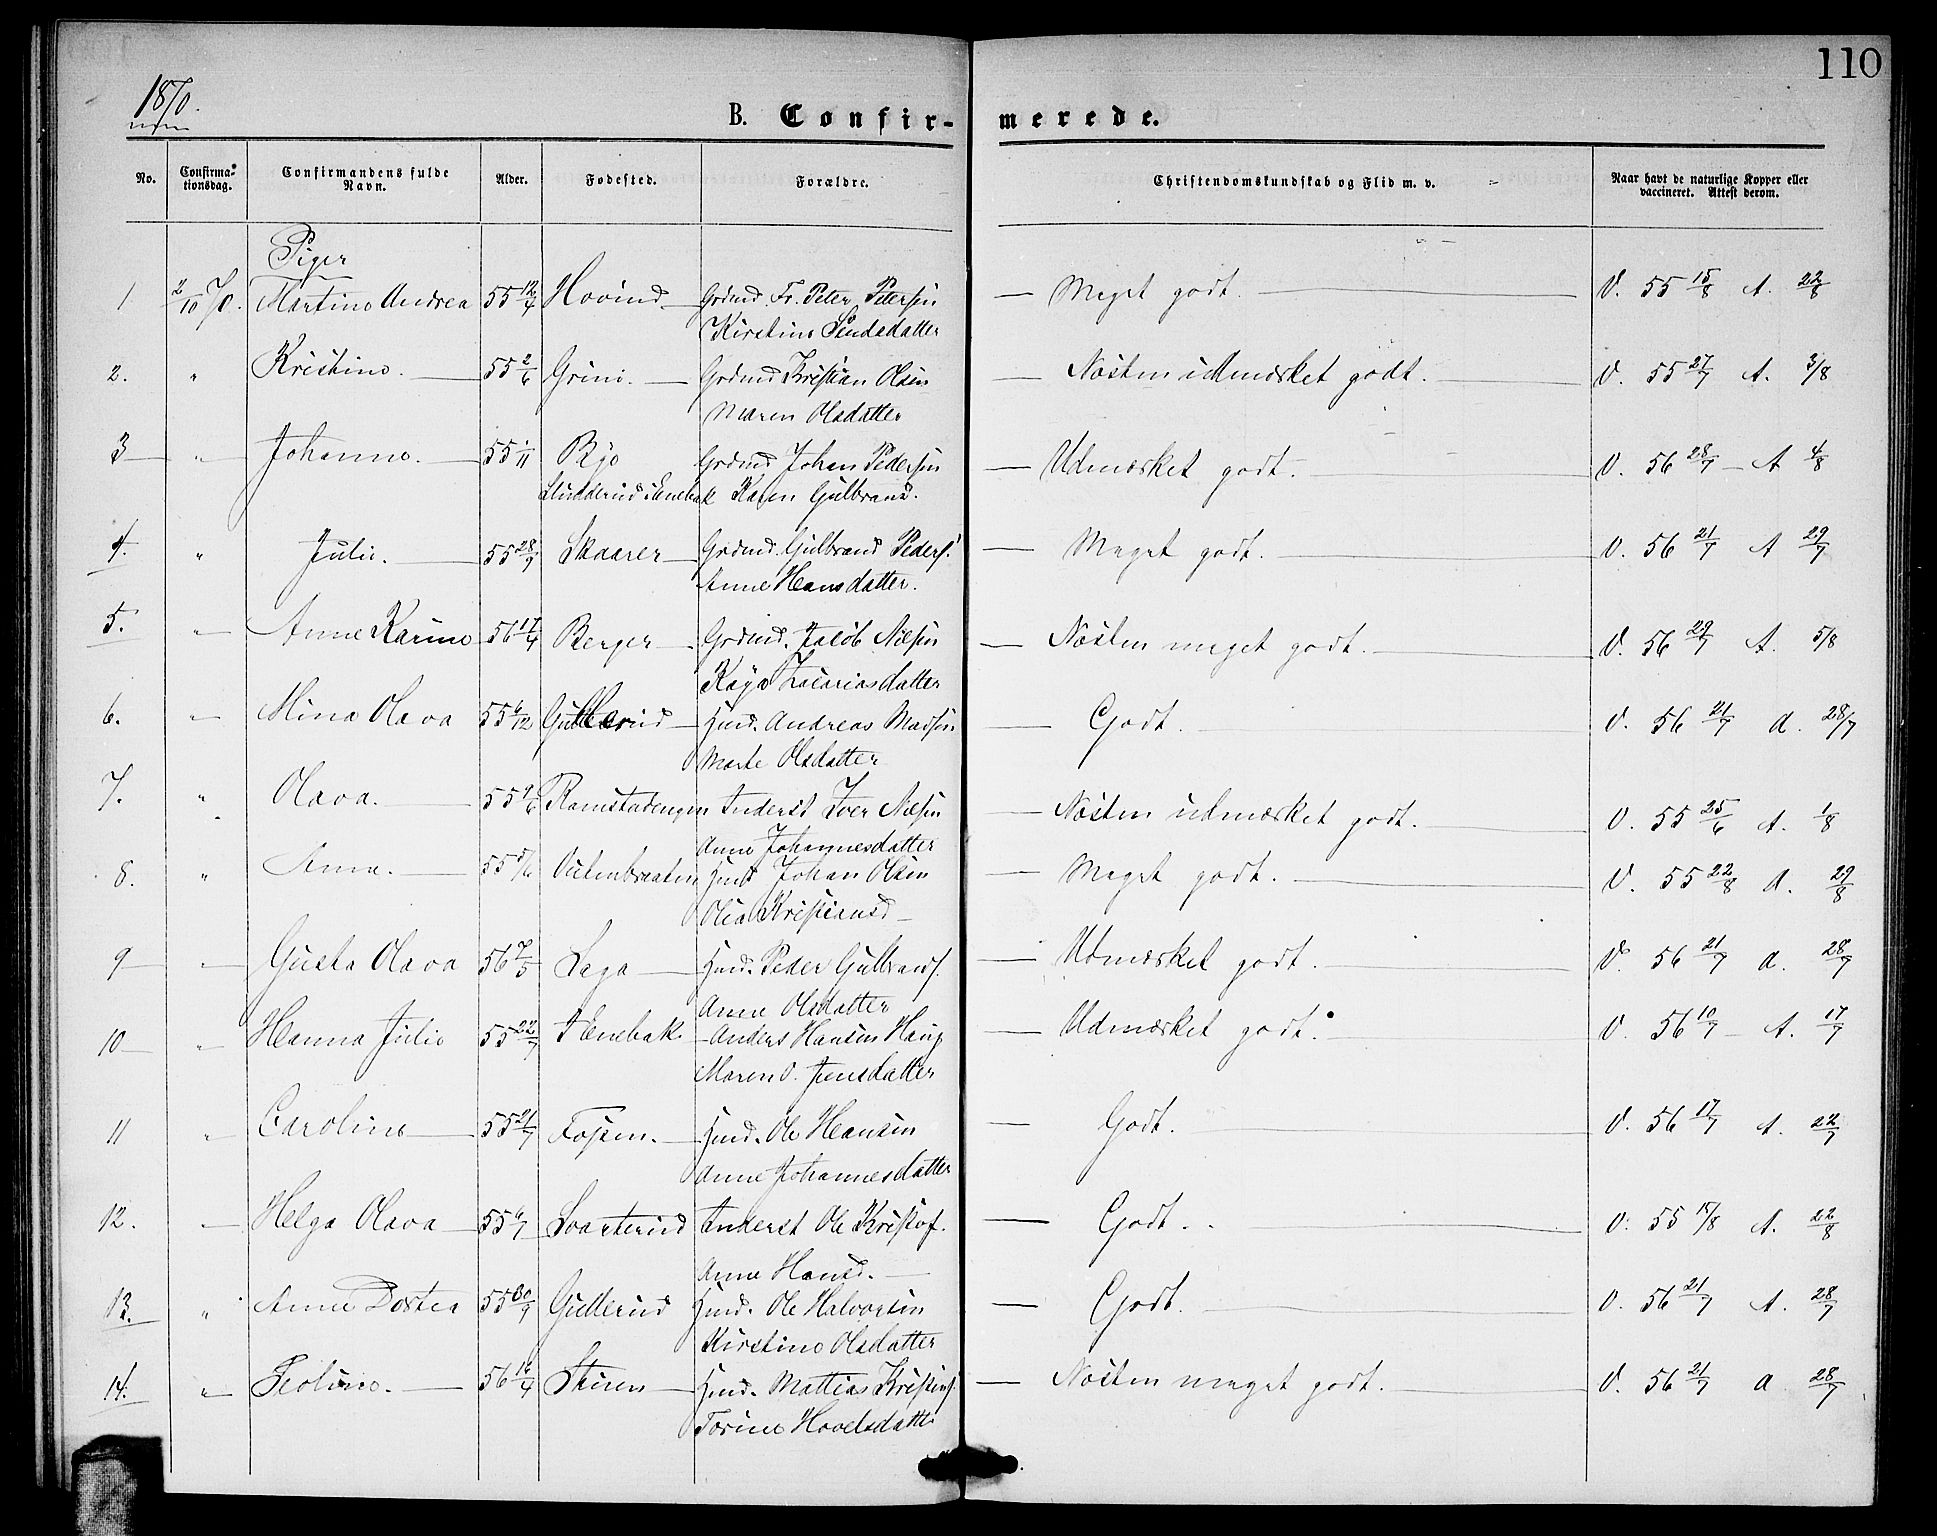 110
1870.
B. Confir- merede.
No. Confirma-tionsdag. Confirmandens fulde Navn. Alder. Fødested. Forældre. Christendomskundskab og Flid m. v. Naar havt de naturlige Kopper eller vaccineret. Attest derom.
Piger
1 2/10 70. Martine Andrea 55 12/4 Hovind Grdmd. Fr. Peter Petersen Meget godt. V. 55 15/8 A. 22/8
Kirstine
2. " Kristine. 55 2/6 Grini. Grdmd Kristian Olsen Næsten udmærket godt. V. 55 27/7 A. 3/8
Maren Olsdatter
3 " Johanne. 55 1/11 Bjo Grdmd Johan Pedersen Udmærket godt. V. 56 28/7 A 4/8
Sludderud i Enebak Karen Gulbrand.
4. " Julie. 55 28/9 Skaarer Grdmd. Gulbrand Peders. Meget godt. V. 56 21/7 A 29/7
Anne Hansdatter.
5. " Anne Karine 56 17/4 Berger Grdmd. Jakob Nilsen Næsten meget godt. V. 56 29/7 A. 5/8
Kaja Zacariasdatter
6. " Mina Olava 55 6/12 Gullerud Hmd. Andreas Madsen Godt. V. 56 21/7 A. 28/7
Marte Olsdatter
7. " Olava. 55 Ramstadengen Inderst Iver Nilsen Næsten udmærket godt. V. 55 25/6 A. 1/8
Anne Johannesdatter
8. " Anna. 55 5/6 Hmd Johan Olsen Meget godt. V. 55 22/8 A. 29/8
Olia Kristiansd
9 " Gusta Olava 56 7/5 Laga Hmd. Peder Gulbrands. Udmærket godt. V. 56 21/7 A. 28/7
Anne Olsdatter
10 " Hanna Julie 55 22/7 I Enebak. Anders Hansen Haug Udmærket godt. V. 56 10/7 A. 17/7
Maren O. Jensdatter
11 " Caroline 55 21/7 Fossen. Hmd. Ole Hansen Godt. V. 56 17/7 A. 22/7
Anne Johannesdatter
12. " Helga Olava 55 6/7 Svarterud Inderst Ole Kristof. Godt. V. 55 15/8 A. 22/8
Anne Hansd.
13. " Anne Dortea 55 30/9 Gullerud Hmd. Ole Halvorsen Godt. V. 56 21/7 A. 28/7
Kirstine Olsdatter
14. " Teoline. 56 Skiren Hmd. Mattias Kristens. Næsten meget godt. V. 56 21/7 A 28/7
Torine Hovelsdatte